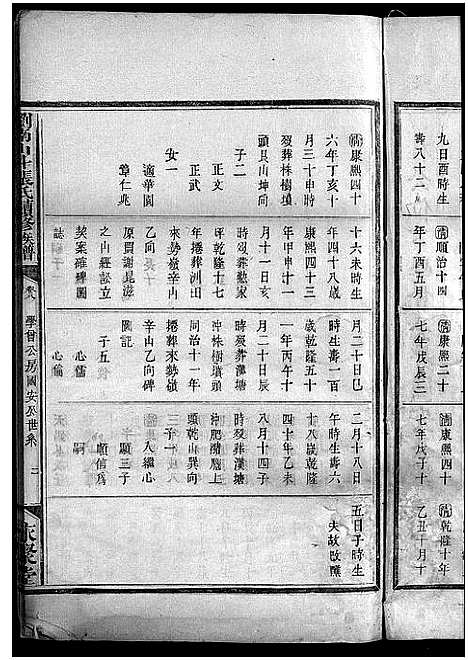 九日酉時生
壽八十二
㊞順治十四
年丁酉五月
㊞康熙二十
七年戊辰三
㊞康熙四十
七年戊子十
㊞乾隆十年
乙丑十月十
㊞康熙四十
六年丁亥十
月三十申時
歿葬株樹墳
頭艮山坤向
子二
正文
正武
女一
適華園
章仁兆
十六未時生
年四十八歲
康熙四十三
年甲申十一
月十一日亥
時歿葬勳家
年捲葬洲山
來勢嶺辛山
乙向
原買謝昆滋
之山經訟立
契案確碑圖
誌
月二十日巳
時生壽一百
歲乾隆五十
一年丙午十
月二十日辰
時歿葬黃塘
沖株樹墳頭
同治十一年
捲葬來勢嶺
辛山乙向碑
圖記
子五
心儒
心儒
二月十八日
午時生壽六
十八歲乾隆
四十年乙未
八月十四子
時歿葬漢塘
沖肥豬廳上
頭乾山巽向
子一
入繼心
順三子
順信爲
嗣
五日子時生
夫故改醮
學曾公房國安公世系
二